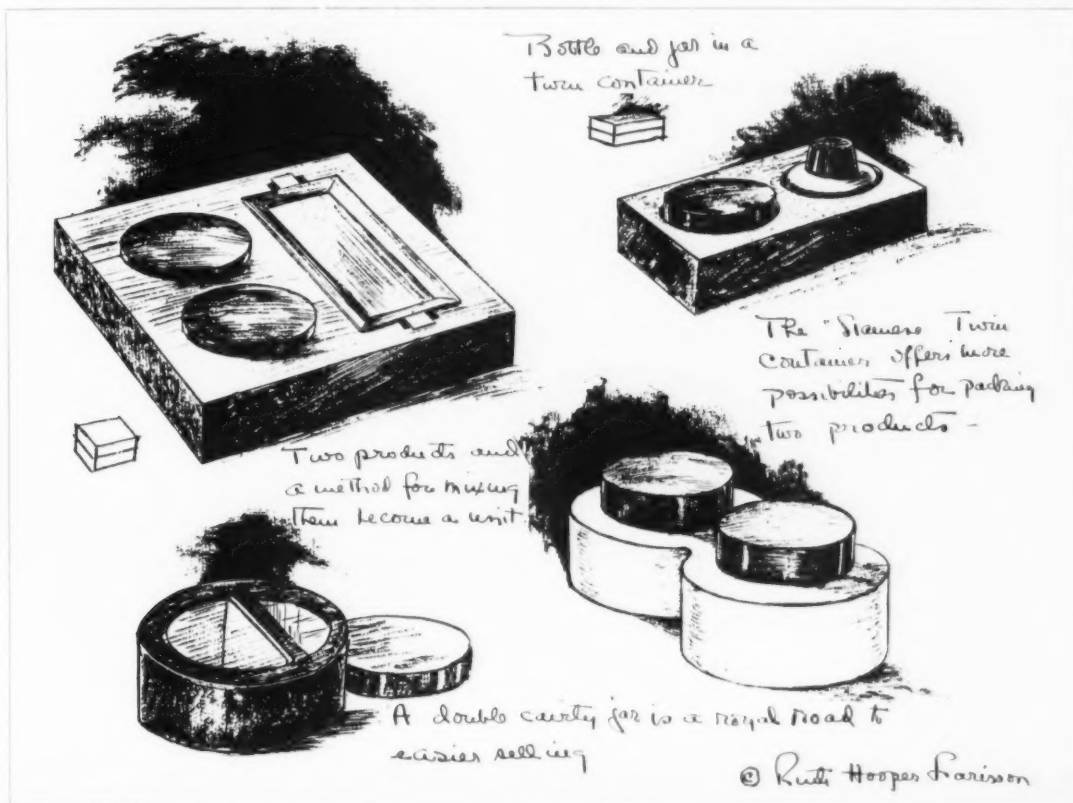 Bottle and jar in a
twin container
The "Siamese Twin
container offers more
possibilities for packing
two products -
Two products and
a method for mixing
them become a unit
A double cavity jar is a royal road to
easier selling
© Ruth Hooper Larisson